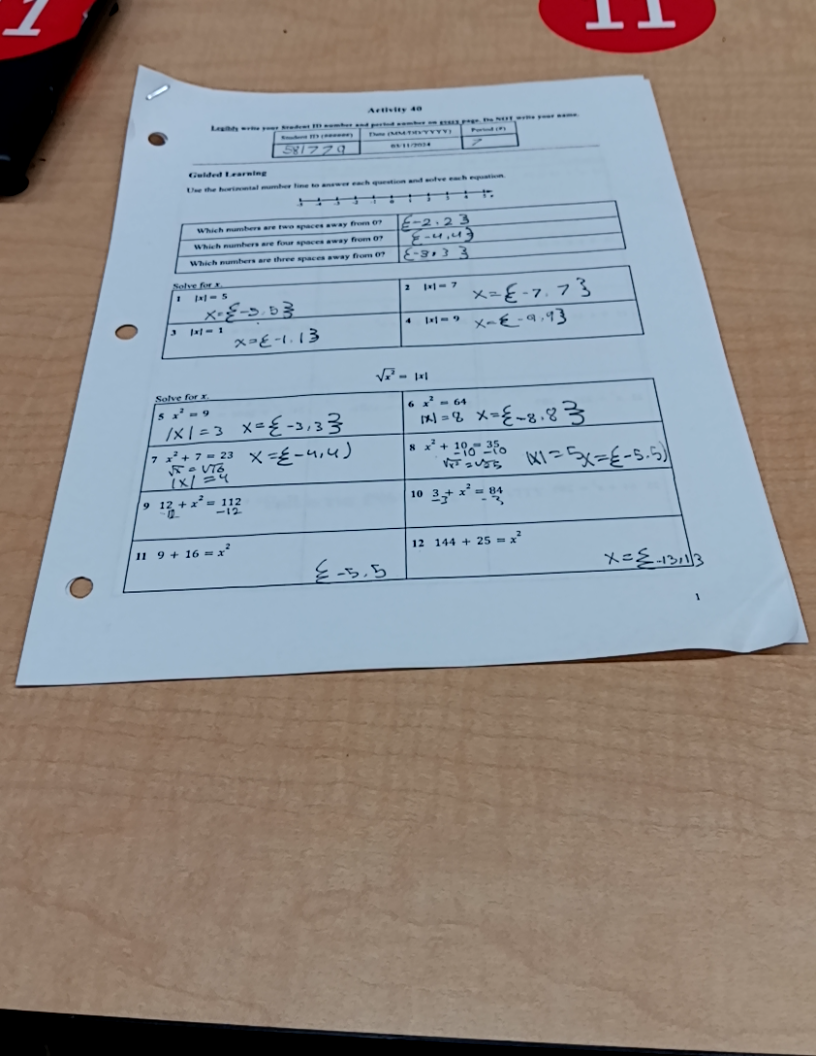 11
Activity 40
Legibly write your Student ID number and period number on every page. Do NOT write your name.
Student ID (######) Date (MM/DD/YYYY) Period (#)
581779 03/11/2024 7
Guided Learning
Use the horizontal number line to answer each question and solve each equation.
Which numbers are two spaces away from 0? {-2,2}
Which numbers are four spaces away from 0? {-4,4}
Which numbers are three spaces away from 0? {-3,3}
Solve for x.
1 |x| = 5 2 |x| = 7
x={-5,5} x={-7,7}
3 |x| = 1 4 |x| = 9
x={-1,1} x={-9,9}
√x² = |x|
Solve for x.
5 x² = 9 6 x² = 64
|x|=3 x={-3,3} |x|=8 x={-8,8}
7 x² + 7 = 23 x={-4,4) 8 x² + 10 = 35
-10 -10
√x²=√25 |x|=5 x={-5,5)
|x|=4
9 12 + x² = 112 10 3 + x² = 84
-12 -12 -3 -3
11 9 + 16 = x² 12 144 + 25 = x²
{-5,5 x={-13,13
1